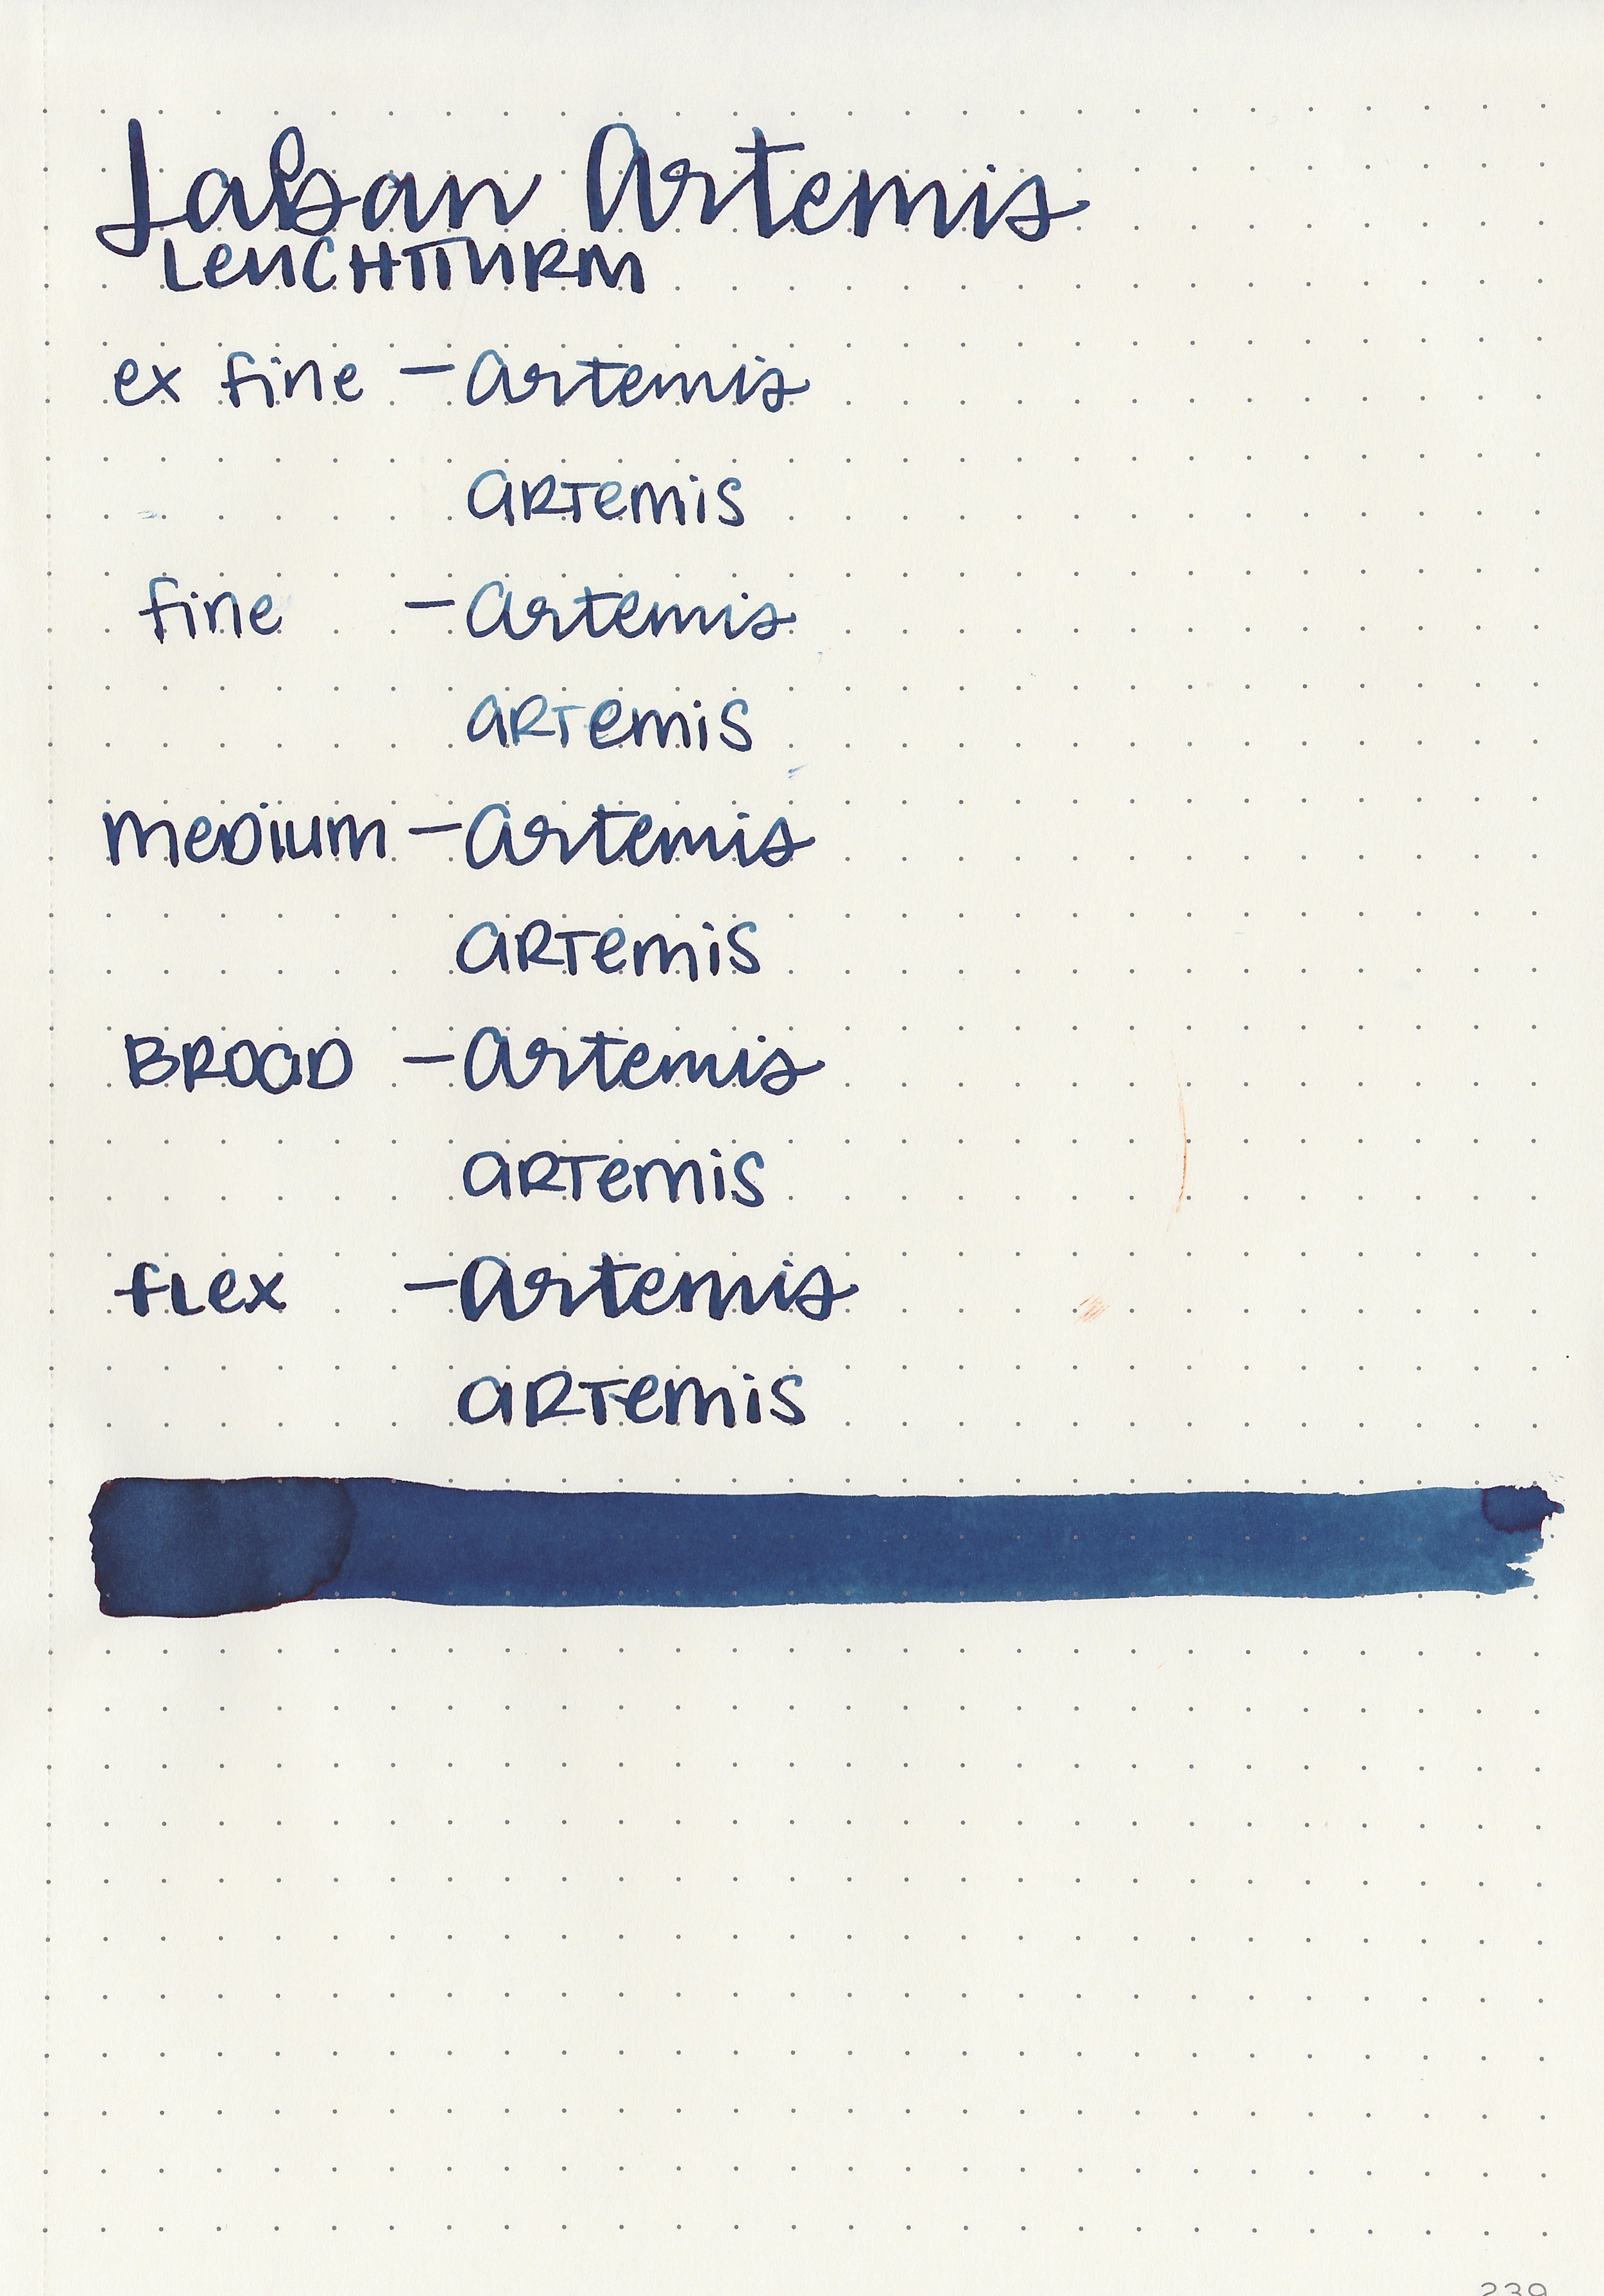 Laban Artemis
LEUCHTTURM
ex fine - Artemis
ARTemis
fine - Artemis
ARTemis
meDium - Artemis
ARTemis
BROaD - Artemis
ARTemis
fLex - Artemis
ARTemis
239